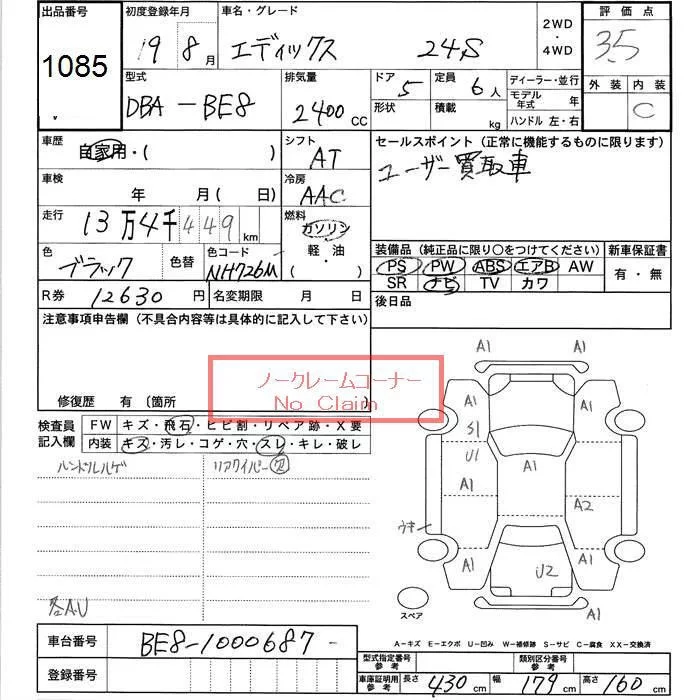 出品番号 初度登録年月 車名・グレード 2WD・4WD 評価点
1085 19 8月 エディックス 24S 3.5
型式 排気量 ドア 定員 ディーラー・並行 外装 内装
DBA-BE8 2400 CC 5 6人 モデル年式 年 C
形状 積載 kg ハンドル 左・右
車歴 自家用・( ) シフト AT セールスポイント (正常に機能するものに限ります)
ユーザー買取車
車検 年 月( 日) 冷房 AAC
走行 13万4千449km 燃料 ガソリン 軽・油 ( )
装備品 (純正品に限り○をつけてください) 新車保証書
色 ブラック 色替 色コード NH726M
PS PW ABS エアB AW 有・無
SR ナビ TV カワ
R券 12630円 名変期限 月 日 後日品
注意事項申告欄 (不具合内容等は具体的に記入して下さい)
ノークレームコーナー
No Claim
修復歴 有 (箇所
検査員記入欄 FW キズ・飛石・ヒビ割・リペア跡・X要
内装 キズ・汚レ・コゲ・穴・スレ・キレ・破レ
ハンドルハゲ リアワイパー欠
各A.U
A1 A1
A1 A1
S1
U1 A1
A1 A2
ウキ
A1 A1
U2
A1
スペア
A-キズ E-エクボ U-凹み W-補修跡 S-サビ C-腐食 XX-交換済
車台番号 BE8-1000687-
登録番号
型式指定番号参考 類別区分番号参考
車庫証明用参考 長さ 430cm 幅 179cm 高さ 160cm